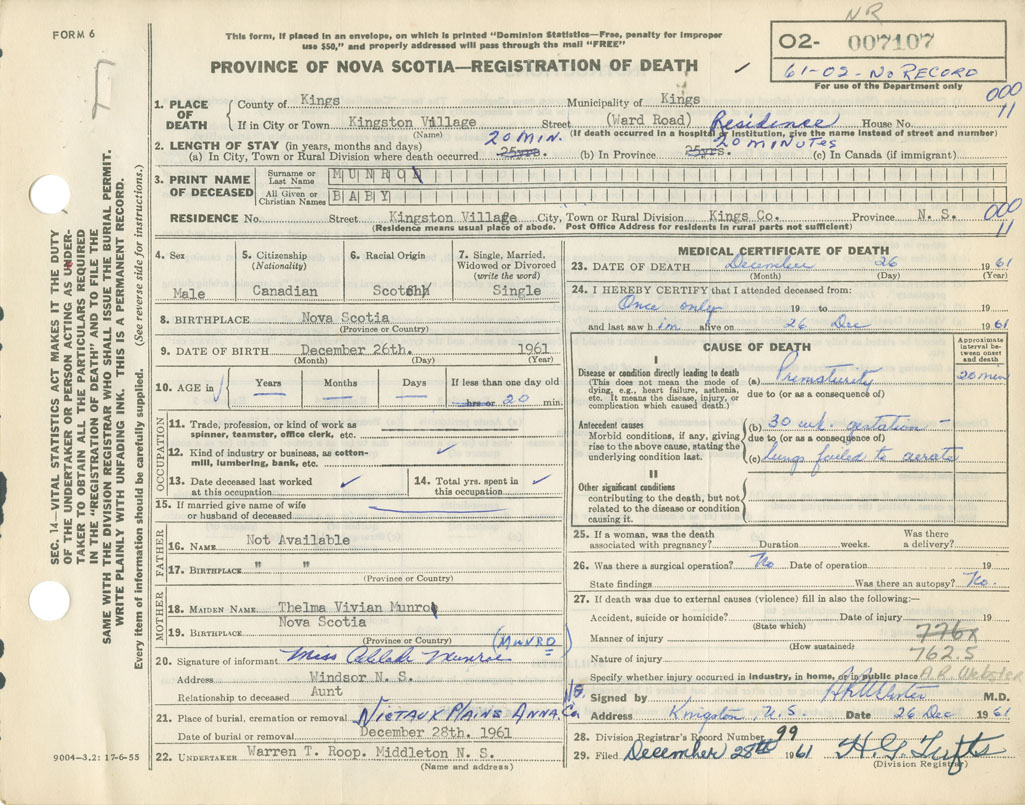 NR
FORM 6
This form, if placed in an envelope, on which is printed "Dominion Statistics—Free, penalty for improper
use $50," and properly addressed will pass through the mail "FREE"
02- 007107
61-02 - No RECORD
For use of the Department only
PROVINCE OF NOVA SCOTIA—REGISTRATION OF DEATH
000
11
1. PLACE OF DEATH County of Kings Municipality of Kings
If in City or Town Kingston Village Street (Ward Road) Residence House No.
(Name) (If death occurred in a hospital or institution, give the name instead of street and number)
2. LENGTH OF STAY (in years, months and days) 20 MIN. 20 MINUTES
(a) In City, Town or Rural Division where death occurred 25yrs. (b) In Province 25yrs. (c) In Canada (if immigrant)
3. PRINT NAME OF DECEASED
Surname or Last Name MUNRO
All Given or Christian Names BABY
RESIDENCE No. Street Kingston Village City, Town or Rural Division Kings Co. Province N. S.
000
11
(Residence means usual place of abode. Post Office Address for residents in rural parts not sufficient)
4. Sex Male
5. Citizenship (Nationality) Canadian
6. Racial Origin Scotch
7. Single, Married, Widowed or Divorced (write the word) Single
8. BIRTHPLACE Nova Scotia
(Province or Country)
9. DATE OF BIRTH December 26th. 1961
(Month) (Day) (Year)
10. AGE in Years Months Days If less than one day old
— — — hrs or 20 min.
OCCUPATION
11. Trade, profession, or kind of work as
spinner, teamster, office clerk, etc.
12. Kind of industry or business, as cotton-
mill, lumbering, bank, etc.
13. Date deceased last worked
at this occupation
14. Total yrs. spent in
this occupation
15. If married give name of wife
or husband of deceased
FATHER
16. NAME Not Available
17. BIRTHPLACE " "
(Province or Country)
MOTHER
18. MAIDEN NAME Thelma Vivian Munro
19. BIRTHPLACE Nova Scotia
(Province or Country) (MUNRO)
20. Signature of informant Miss Munroe
Address Windsor N. S.
Relationship to deceased Aunt
21. Place of burial, cremation or removal NICTAUX PLAINS ANNA. Co. N.S.
Date of burial or removal December 28th. 1961
22. UNDERTAKER Warren T. Roop. Middleton N. S.
(Name and address)
9004—3.2: 17-6-55
MEDICAL CERTIFICATE OF DEATH
23. DATE OF DEATH December 26 1961
(Month) (Day) (Year)
24. I HEREBY CERTIFY that I attended deceased from:
Once only 19 to 19
and last saw h im alive on 26 Dec 1961
CAUSE OF DEATH
Approximate interval between onset and death
I
Disease or condition directly leading to death
(This does not mean the mode of
dying, e.g., heart failure, asthenia,
etc. It means the disease, injury, or
complication which caused death.)
(a) Prematurity 20 min
due to (or as a consequence of)
Antecedent causes
Morbid conditions, if any, giving
rise to the above cause, stating the
underlying condition last.
(b) 30 wk. gestation -
due to (or as a consequence of)
(c) lungs failed to aerate
II
Other significant conditions
contributing to the death, but not
related to the disease or condition
causing it.
25. If a woman, was the death Was there
associated with pregnancy? Duration weeks. a delivery?
26. Was there a surgical operation? No Date of operation 19
State findings Was there an autopsy? No.
27. If death was due to external causes (violence) fill in also the following:—
Accident, suicide or homicide? Date of injury 19
(State which)
776x
Manner of injury
(How sustained)
762.5
Nature of injury
Specify whether injury occurred in industry, in home, or in public place A.R. Webster
Signed by AR Webster M.D.
Address Kingston, N.S. Date 26 Dec 1961
28. Division Registrar's Record Number 99
29. Filed December 28th 1961 H G Tufts
(Division Registrar)
SEC. 14—VITAL STATISTICS ACT MAKES IT THE DUTY
OF THE UNDERTAKER OR PERSON ACTING AS UNDER-
TAKER TO OBTAIN ALL THE PARTICULARS REQUIRED
IN THE "REGISTRATION OF DEATH" AND TO FILE THE
SAME WITH THE DIVISION REGISTRAR WHO SHALL ISSUE THE BURIAL PERMIT.
WRITE PLAINLY WITH UNFADING INK. THIS IS A PERMANENT RECORD.
Every item of information should be carefully supplied. (See reverse side for instructions.)